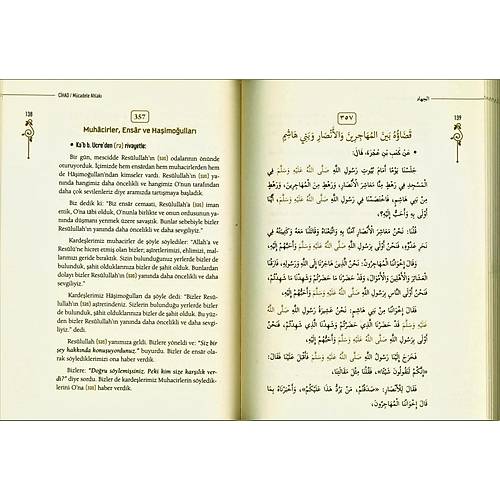 CİHAD / Mücadele Ahlakı
138
357
Muhâcirler, Ensâr ve Haşimoğulları
• Ka'b b. Ucre'den (ra) rivayetle:
Bir gün, mescidde Resûlullah'ın (sas) odalarının önünde
oturuyorduk. İçimizde hem ensardan hem muhacirlerden hem
de Hâşimoğulları'ndan kimseler vardı. Resûlullah'ın (sas) ya-
nında hangimiz daha öncelikli ve hangimiz O'nun tarafından
daha çok sevilenleriz diye aramızda tartışmaya başladık.
Biz dedik ki: "Biz ensar cemaati, Resûlullah'a (sas) iman
etik, O'na tâbi olduk, O'nunla birlikte ve onun ordusunun ya-
nında düşmanı yenmek üzere savaştık. Bunlar sebebiyle bizler
Resûlullah'ın yanında daha öncelikli ve daha sevgiliyiz."
Kardeşlerimiz muhacirler de şöyle söylediler: "Allah'a ve
Resûlu'ne hicret etmiş olan bizler; aşiretlerimizi, ehlimizi, mal-
larımızı geride bıraktık. Sizin bulunduğunuz yerlerde bizler de
bulunduk, şahit olduklarınıza bizler de şahit olduk. Bunlardan
dolayı bizler Resûlullah'ın (sas) yanında daha öncelikli ve daha
sevgiliyiz."
Kardeşlerimiz Hâşimoğulları da şöyle dedi: "Bizler Resû-
lullah'ın (sas) aşiretindeniz. Sizlerin bulunduğu yerlerde bizler
de bulunduk, şahit olduklarınıza bizler de şahit olduk. Bu yüz-
den bizler Resûlullah'ın yanında daha öncelikli ve daha sevgi-
liyiz." dedi.
Resûlullah (sas) yanımıza geldi. Bizlere yöneldi ve: "Siz bir
şey hakkında konuşuyordunuz." buyurdu. Bizler de ensar ola-
rak söylediklerimizi ona haber verdik.
Bizlere: "Doğru söylemişsiniz. Peki kim size karşılık ver-
di?" diye sordu. Bizler de kardeşlerimiz Muhacirlerin söyledik-
lerini O'na (sas) haber verdik.
الجهاد
139
٣٥٧
قَضَاؤُهُ بَيْنَ الْمُهَاجِرِينَ وَالْأَنْصَارِ وَبَنِي هَاشِمٍ
• عَنْ كَعْبِ بْنِ عُجْرَةَ، قَالَ:
جَلَسْنَا يَوْمًا أَمَامَ بُيُوتِ رَسُولِ اللَّهِ صَلَّى اللَّهُ عَلَيْهِ وَسَلَّمَ فِي
الْمَسْجِدِ فِي رَهْطٍ مِنَّا مَعْشَرَ الْأَنْصَارِ، وَرَهْطٍ مِنَ الْمُهَاجِرِينَ، وَرَهْطٍ
مِنْ بَنِي هَاشِمٍ، فَاخْتَصَمْنَا فِي رَسُولِ اللَّهِ صَلَّى اللَّهُ عَلَيْهِ وَسَلَّمَ أَيُّنَا
أَوْلَى بِهِ وَأَحَبُّ إِلَيْهِ؟
قُلْنَا: نَحْنُ مَعَاشِرَ الْأَنْصَارِ آمَنَّا بِهِ وَاتَّبَعْنَاهُ وَقَاتَلْنَا مَعَهُ وَكَتِيبَتُهُ فِي
نَحْرِ عَدُوِّهِ، فَنَحْنُ أَوْلَى بِرَسُولِ اللَّهِ صَلَّى اللَّهُ عَلَيْهِ وَسَلَّمَ وَأَحَبُّهُمْ إِلَيْهِ،
وَقَالَ إِخْوَانُنَا الْمُهَاجِرُونَ: نَحْنُ الَّذِينَ هَاجَرْنَا إِلَى اللَّهِ وَرَسُولِهِ، وَفَارَقْنَا
الْعَشَائِرَ وَالْأَهْلِينَ وَالْأَمْوَالَ، وَقَدْ حَضَرْنَا مَا حَضَرْتُمْ وَشَهِدْنَا مَا شَهِدْتُمْ،
فَنَحْنُ أَوْلَى النَّاسِ بِرَسُولِ اللَّهِ صَلَّى اللَّهُ عَلَيْهِ وَسَلَّمَ وَأَحَبُّهُمْ إِلَيْهِ،
وَقَالَ إِخْوَانُنَا مِنْ بَنِي هَاشِمٍ: نَحْنُ عَشِيرَةُ رَسُولِ اللَّهِ صَلَّى اللَّهُ
عَلَيْهِ وَسَلَّمَ وَقَدْ حَضَرْنَا الَّذِي حَضَرْتُمْ، وَشَهِدْنَا الَّذِي شَهِدْتُمْ، فَنَحْنُ
أَوْلَى بِرَسُولِ اللَّهِ صَلَّى اللَّهُ عَلَيْهِ وَسَلَّمَ وَأَحَبُّهُمْ إِلَيْهِ.
فَخَرَجَ عَلَيْنَا رَسُولُ اللَّهِ صَلَّى اللَّهُ عَلَيْهِ وَسَلَّمَ فَأَقْبَلَ عَلَيْنَا فَقَالَ:
«إِنَّكُمْ لَتَقُولُونَ شَيْئًا»، فَقُلْنَا مِثْلَ مَقَالَتِنَا،
فَقَالَ لِلْأَنْصَارِ: «صَدَقْتُمْ، مَنْ يَرُدُّ هَذَا عَلَيْكُمْ»، وَأَخْبَرْنَاهُ بِمَا
قَالَ إِخْوَانُنَا الْمُهَاجِرُونَ،